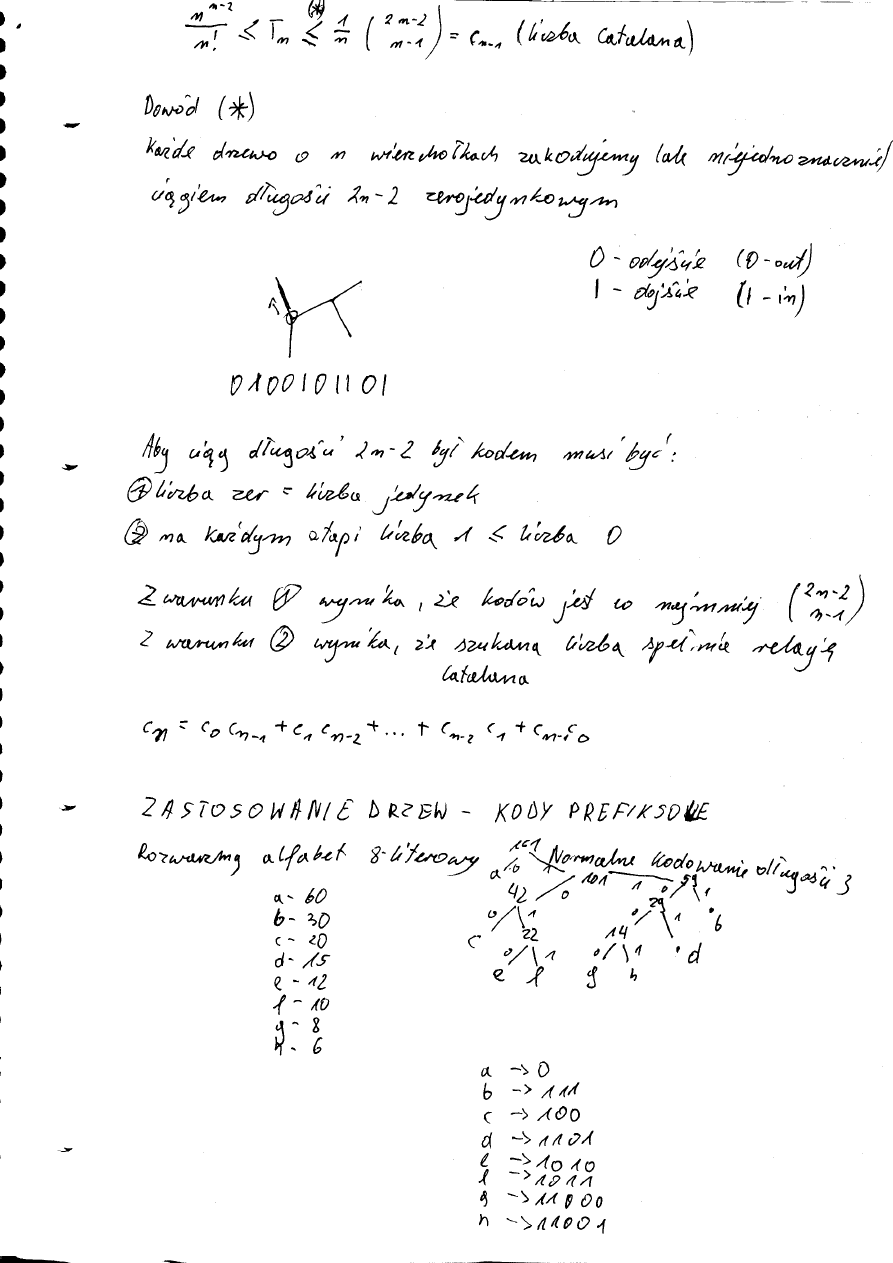 n^{n-2}/n! ≤ T_n ≤^{(*)} 1/n (2n-2 n-1) = c_{n-1} (liczba Catalana)
Dowód (*)
Każde drzewo o n wierzchołkach zakodujemy (ale niejednoznacznie)
ciągiem długości 2n-2 zerojedynkowym
0 - odejście (0-out)
1 - dojście (1-in)
0100101101
Aby ciąg długości 2n-2 był kodem musi być:
① liczba zer = liczba jedynek
② na każdym etapi liczba 1 ≤ liczba 0
Z warunku ① wynika, że kodów jest co najmniej (2n-2 n-1)
Z warunku ② wynika, że szukana liczba spełnia relację
Catalana
c_n = c_0 c_{n-1} + c_1 c_{n-2} + ... + c_{n-2} c_1 + c_{n-1} c_0
ZASTOSOWANIE DRZEW - KODY PREFIKSOWE
Rozważmy alfabet 8-literowy Normalne kodowanie długości 3
161
a 0 1
101
42 0 1 59
0 1 0 29 1
c 22 14 1 b
0 1 0 1 d
e f g h
a - 60
b - 30
c - 20
d - 15
e - 12
f - 10
g - 8
h - 6
a -> 0
b -> 111
c -> 100
d -> 1101
e -> 1010
f -> 1011
g -> 11000
h -> 11001